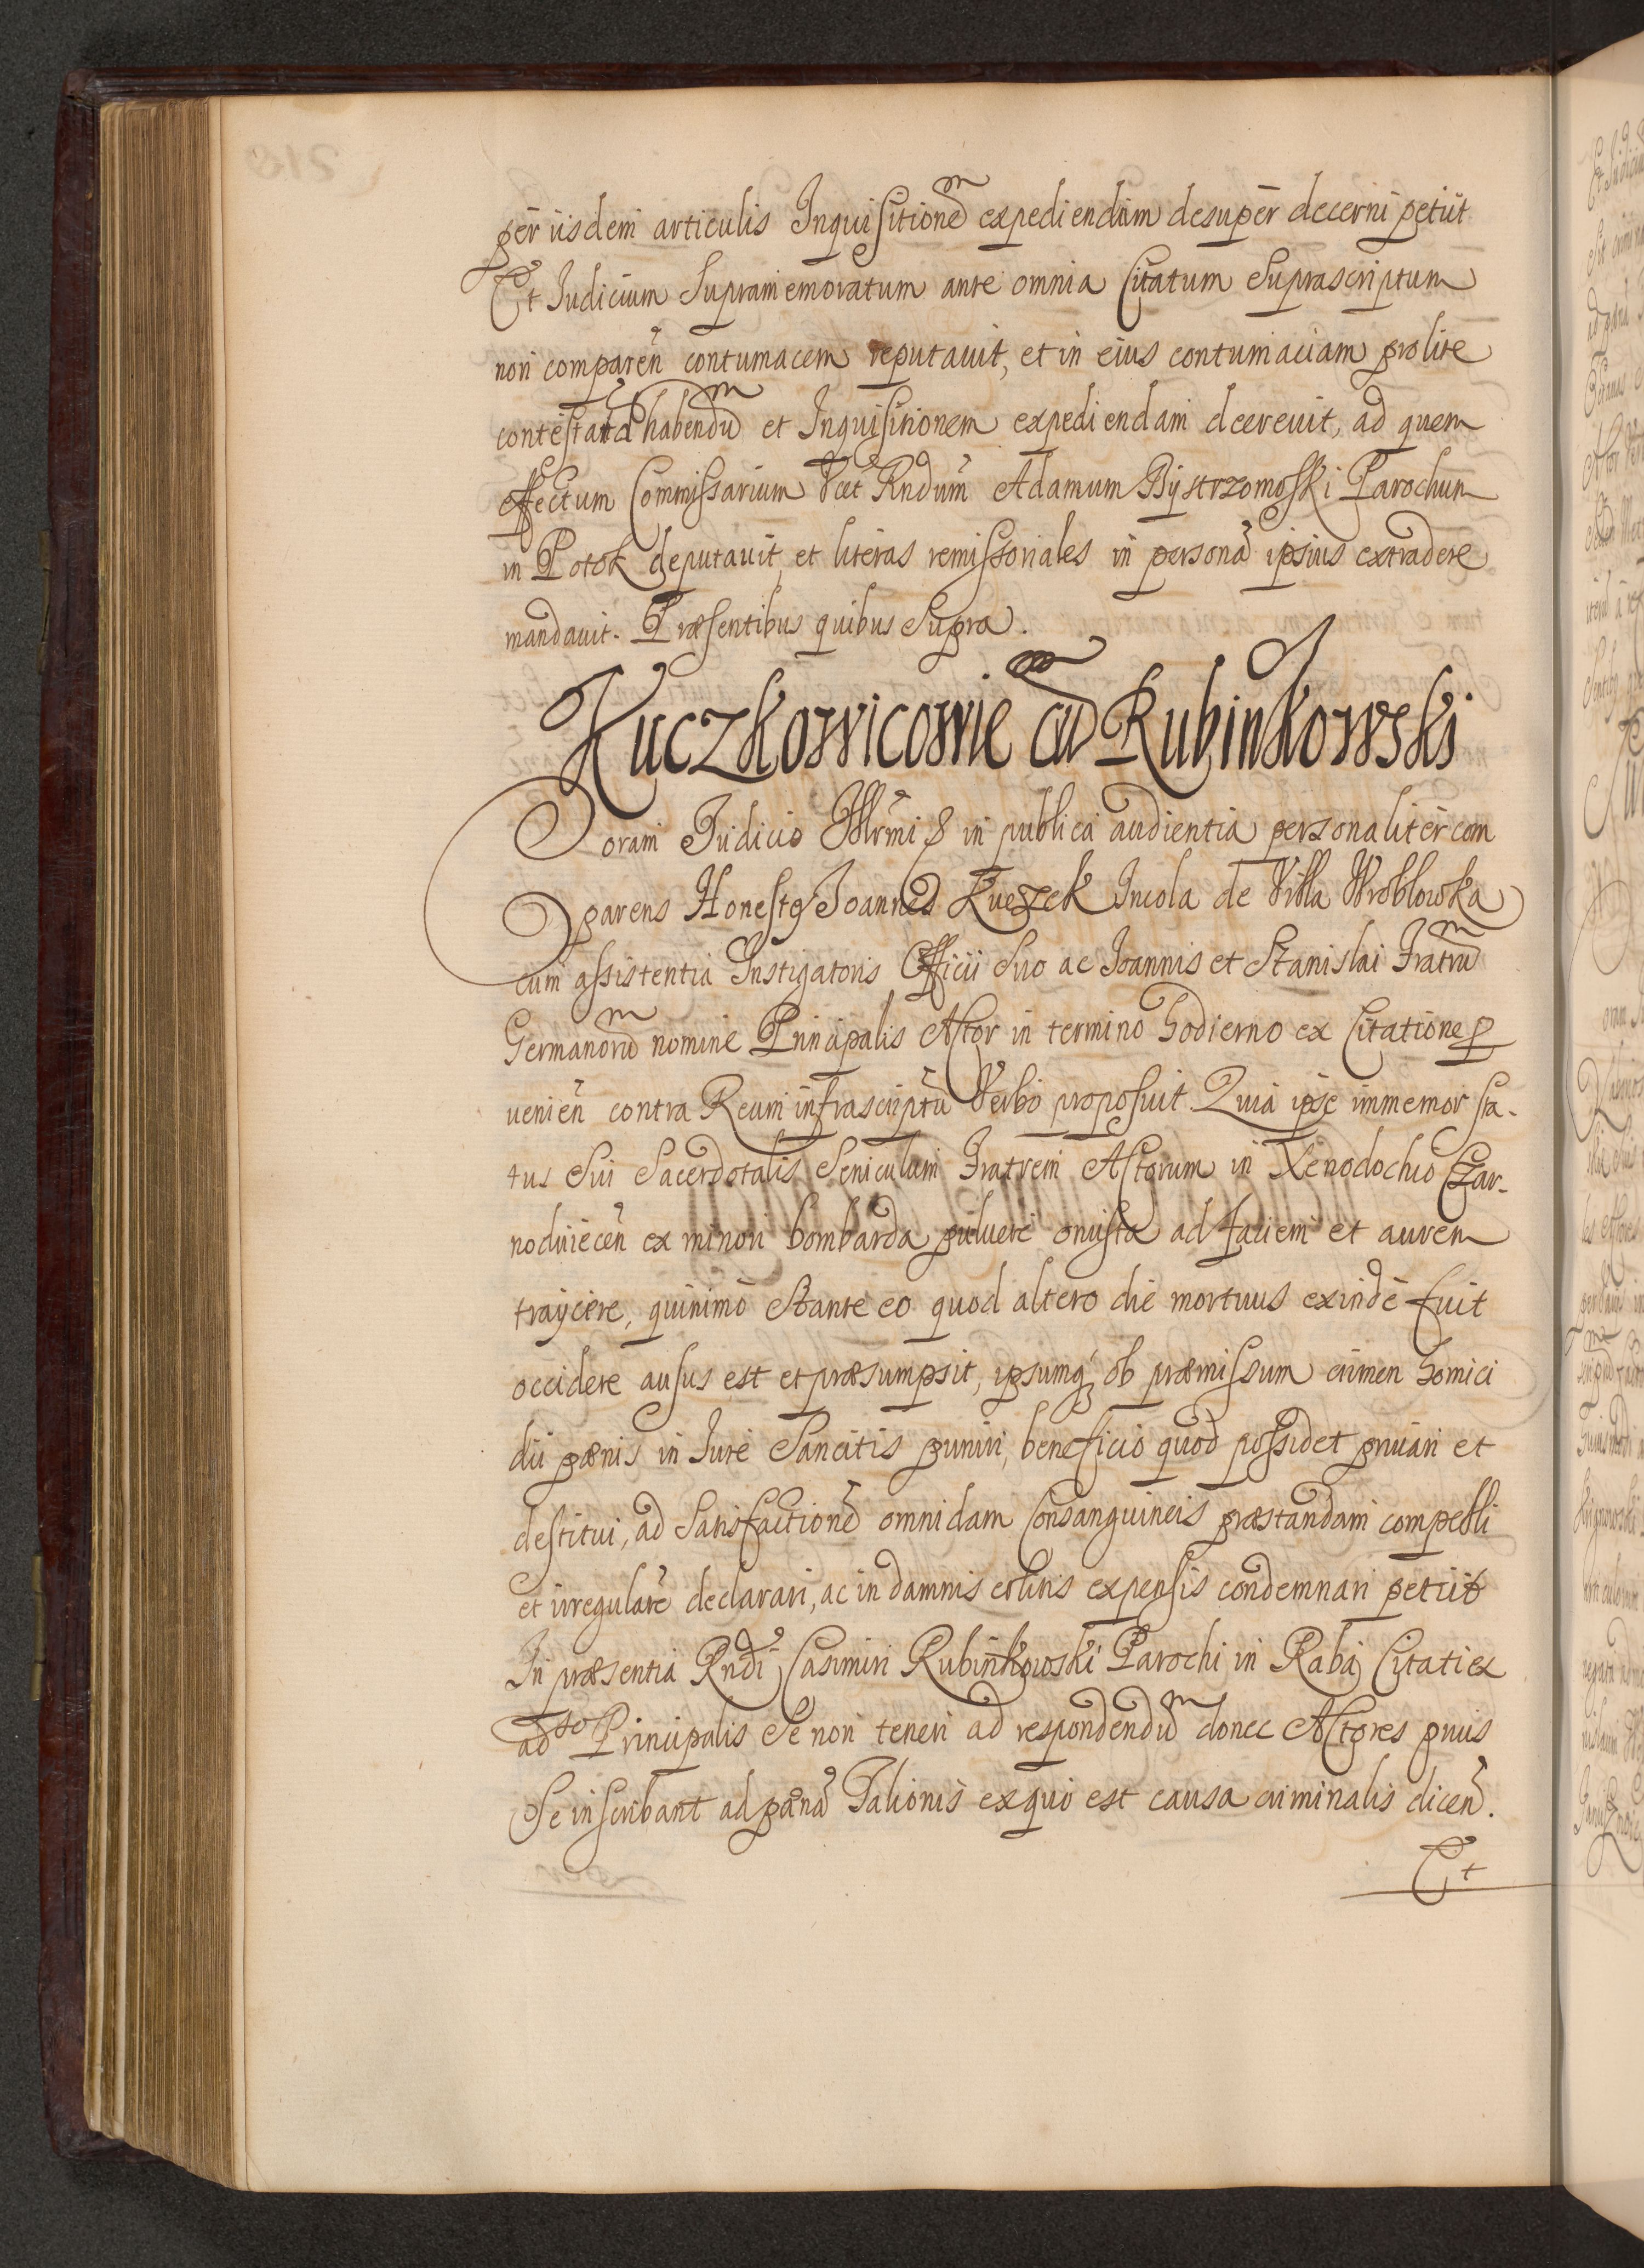 per iisdem articulis Inquisitionem expediendam desuper decerni petiit
Et Iudicium Supramemoratum ante omnia Citatum Suprascriptum
non comparen contumacem reputauit, et in eius contumaciam pro lite
contestata habendum et Inquisitionem expediendam decreuit, ad quem
effectum Commissarium Rndum Adamum Bystrzomoski Parochum
in Potok deputauit, et literas remissoriales in persona ipsius extradere
mandauit. Præsentibus quibus Supra.
Kuczkowicowie cum Rubinkowski
Coram Iudicio in publica audientia personaliter com
parens Honestus Ioannes Kuczek Incola de Villa Wroblowka
cum assistentia Instigatoris Officii suo ac Ioannis et Stanislai Fratrum
Germanorum nomine Principalis Actor in termino hodierno ex Citatione p
uenien contra Reum infrascriptum Verbo proposuit. Quia ipse immemor sta-
tus Sui Sacerdotalis Seniculum Fratrem Actorum in Xenodochio Czar-
noduiecen ex minori bombarda puluere onusta ad faciem et aurem
traycere, quinimo Stante eo quod altero die mortuus exinde fuit
occidere ausus est et præsumpsit, ipsumq ob præmissum crimen homici
dii pœnis in Iure Sancitis puniri, beneficio quod possidet priuari et
destitui, ad Satisfactionem omnidam Consanguineis præstandam compelli
et irregulare declarari, ac in damnis et litis expensis condemnari petiit
In præsentia Rndi Casimiri Rubinkowski Parochi in Raba Citati ex
aduso Principalis Se non teneri ad respondendum donec Actores prius
Se inscribant ad pœnam Talionis ex quo est causa criminalis dicen.
Et